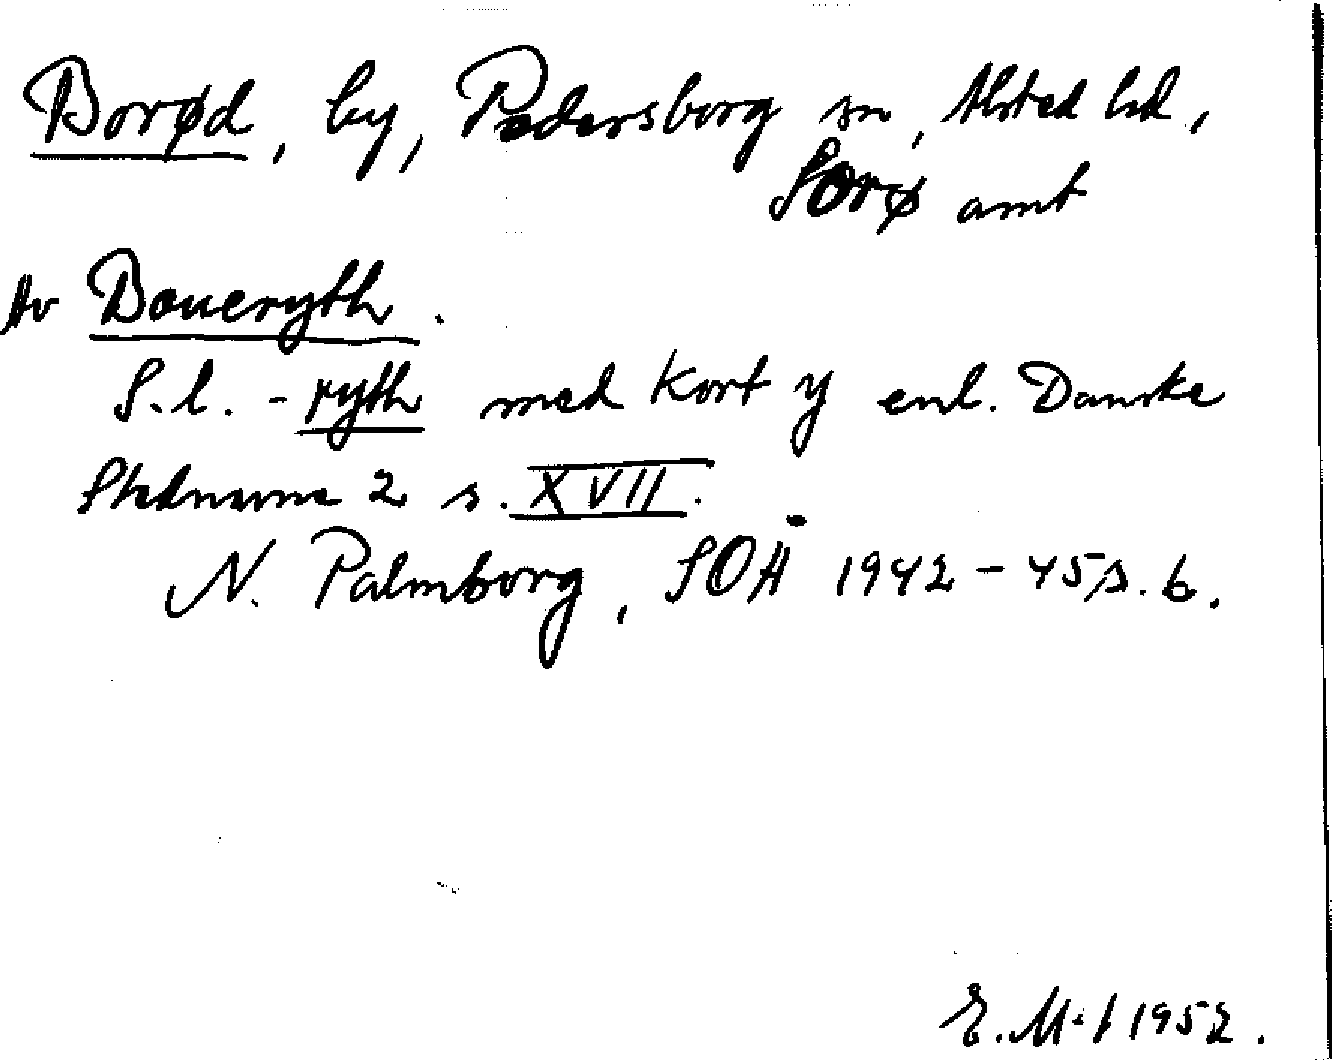 Borød, by, Pedersborg sn, Alsted hd,
Sorø amt
Av Boueryth.
S.l. -ryth med kort y enl. Danske
Stednavne 2 s. XVII.
N. Palmborg, SOÅ 1942-45, s. 6.
E. M-l 1952.